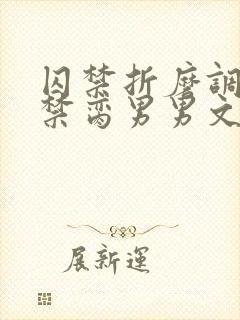 囚禁折磨調
禁脔男男文
展新運